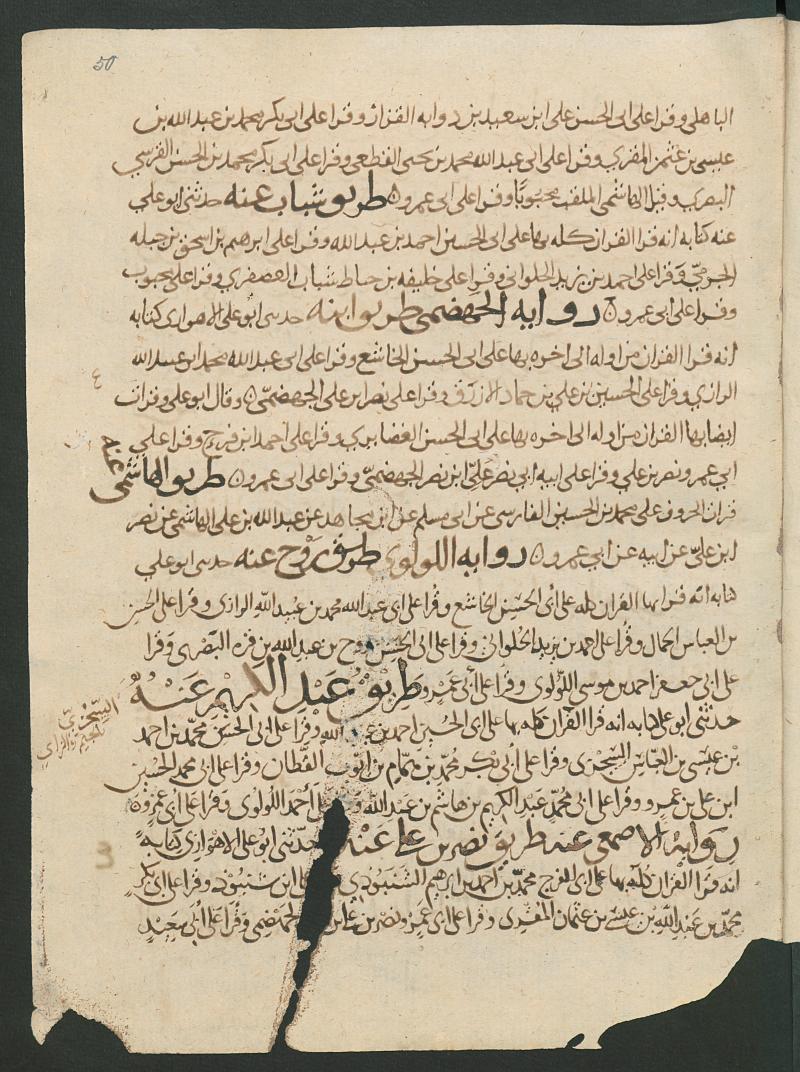 50
الباهلي وقرا على ابى الحسن على ابن سعيد بن ذوابه القزاز وقرا على ابى بكر محمد بن عبد الله بن
عيسى بن عثمن المقرى وقرا على ابى عبد الله محمد بن يحيى القطعي وقرا على ابى بكر محمد بن الحسن القرسي
البصري وقيل الهاشمى الملقب محبوبًا وقرا على ابى عمرو ٥ طريق شباب عنه حدثنى ابو علي
عنه كتابه انه قرا القران كله بها على ابى الحسن احمد بن عبد الله وقرا على ابرهيم بن اسحق بن جبله
الحرميّ وقرا على احمد بن يزيد الحلوانى وقرا على خليفه بن خياط شباب العصفري وقرا على محبوب
وقرا على ابى عمرو ٥ روايه الجهضمى طريق ابنه حدثنى ابو على الاهوازى كتابه
انه قرا القران من اوله الى اخره بها على ابى الحسن الخاشع وقرا على ابى عبد الله محمد ابن عبيد الله
الرازي وقرا على الحسين بن علي بن حماد الازرق وقرا على نصر ابن على الجهضميّ ٥ وقال ابو على وقرات
ايضا بها القران من اوله الى اخره بها على ابى الحسن الغضايري وقرا على احمد ابن فرج وقرا على
ابي عمرو نصر بن علي وقرا على ابيه ابي نصر عليّ ابن نصر الجهضميّ وقرا على ابى عمرو ٥ طريق الهاشمى
قران الحروف على محمد بن الحسين الفارسى عن ابى مسلم عن ابن مجاهد عن عبد الله بن على الهاشمى عن نصر
ابن عليّ عن ابيه عن ابي عمرو ٥ روايه اللولوى طريق روح عنه حدثنى ابو علي
كتابه انه قرا بها القران كله على ابى الحسن الخاشع وقرا على ابى عبد الله محمد بن عبيد الله الرازى وقرا على الحسن
بن العباس الجمال وقرا على احمد بن يزيد الحلوانى وقرا على ابى الحسن روح بن عبد الله بن قره البصرى وقرا
على ابى جعفر احمد بن موسى اللولوى وقرا على ابى عمرو طريق عبد الكريم عنه
حدثنى ابو على كتابه انه قرا القران كله بها على ابى الحسين احمد بن الله وقرا على ابى الحسن محمد بن احمد
بن عيسى بن العباس السجزى وقرا على ابى بكر محمد بن تمام بن ايوب القطان وقرا على ابى محمد الحسين
ابن على بن عمرو وقرا على ابى محمد عبد الكريم بن هاشم بن عبد الله احمد اللولوى وقرا على ابى عمرو ٥
روايه الاصمعى عنه طريق نصر بن على عنه حدثنى ابو على الاهوازى كتابه
انه قرا القران كله بها على ابى الفرج محمد بن احمد بن ابرهيم الشنبوذى على ابن شنبوذ وقرا على ابى بكر
محمد بن عبد الله بن عيسى بن عثمان المقرى وقرا على ابى عمرو نصر بن على الجهضمى وقرا على ابى سعيد
السجزى
بالجيم والزاى